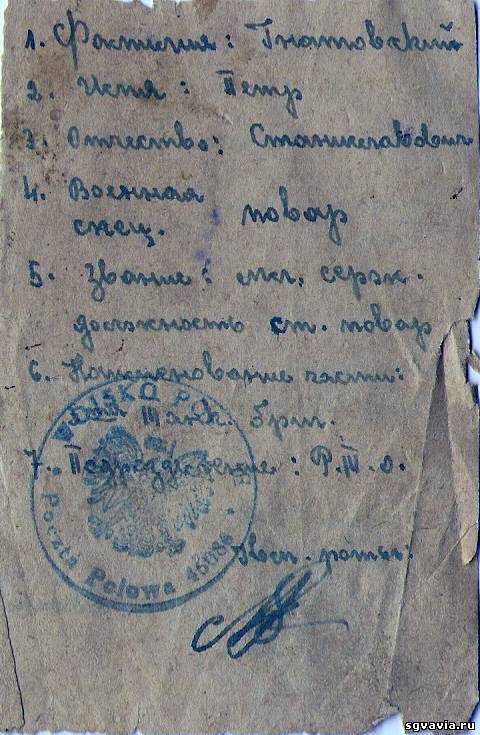 1. Фамилия: Гнатовский
2. Имя: Петр
3. Отчество: Станиславович
4. Военная
спец. повар
5. Звание: мл. серж.
должность ст. повар
6. Наименование части:
Танк. бриг.
7. Подразделение: Р.Т.О.
WOJSKO P
Poczta Polowa
роты:
sgvavia.ru